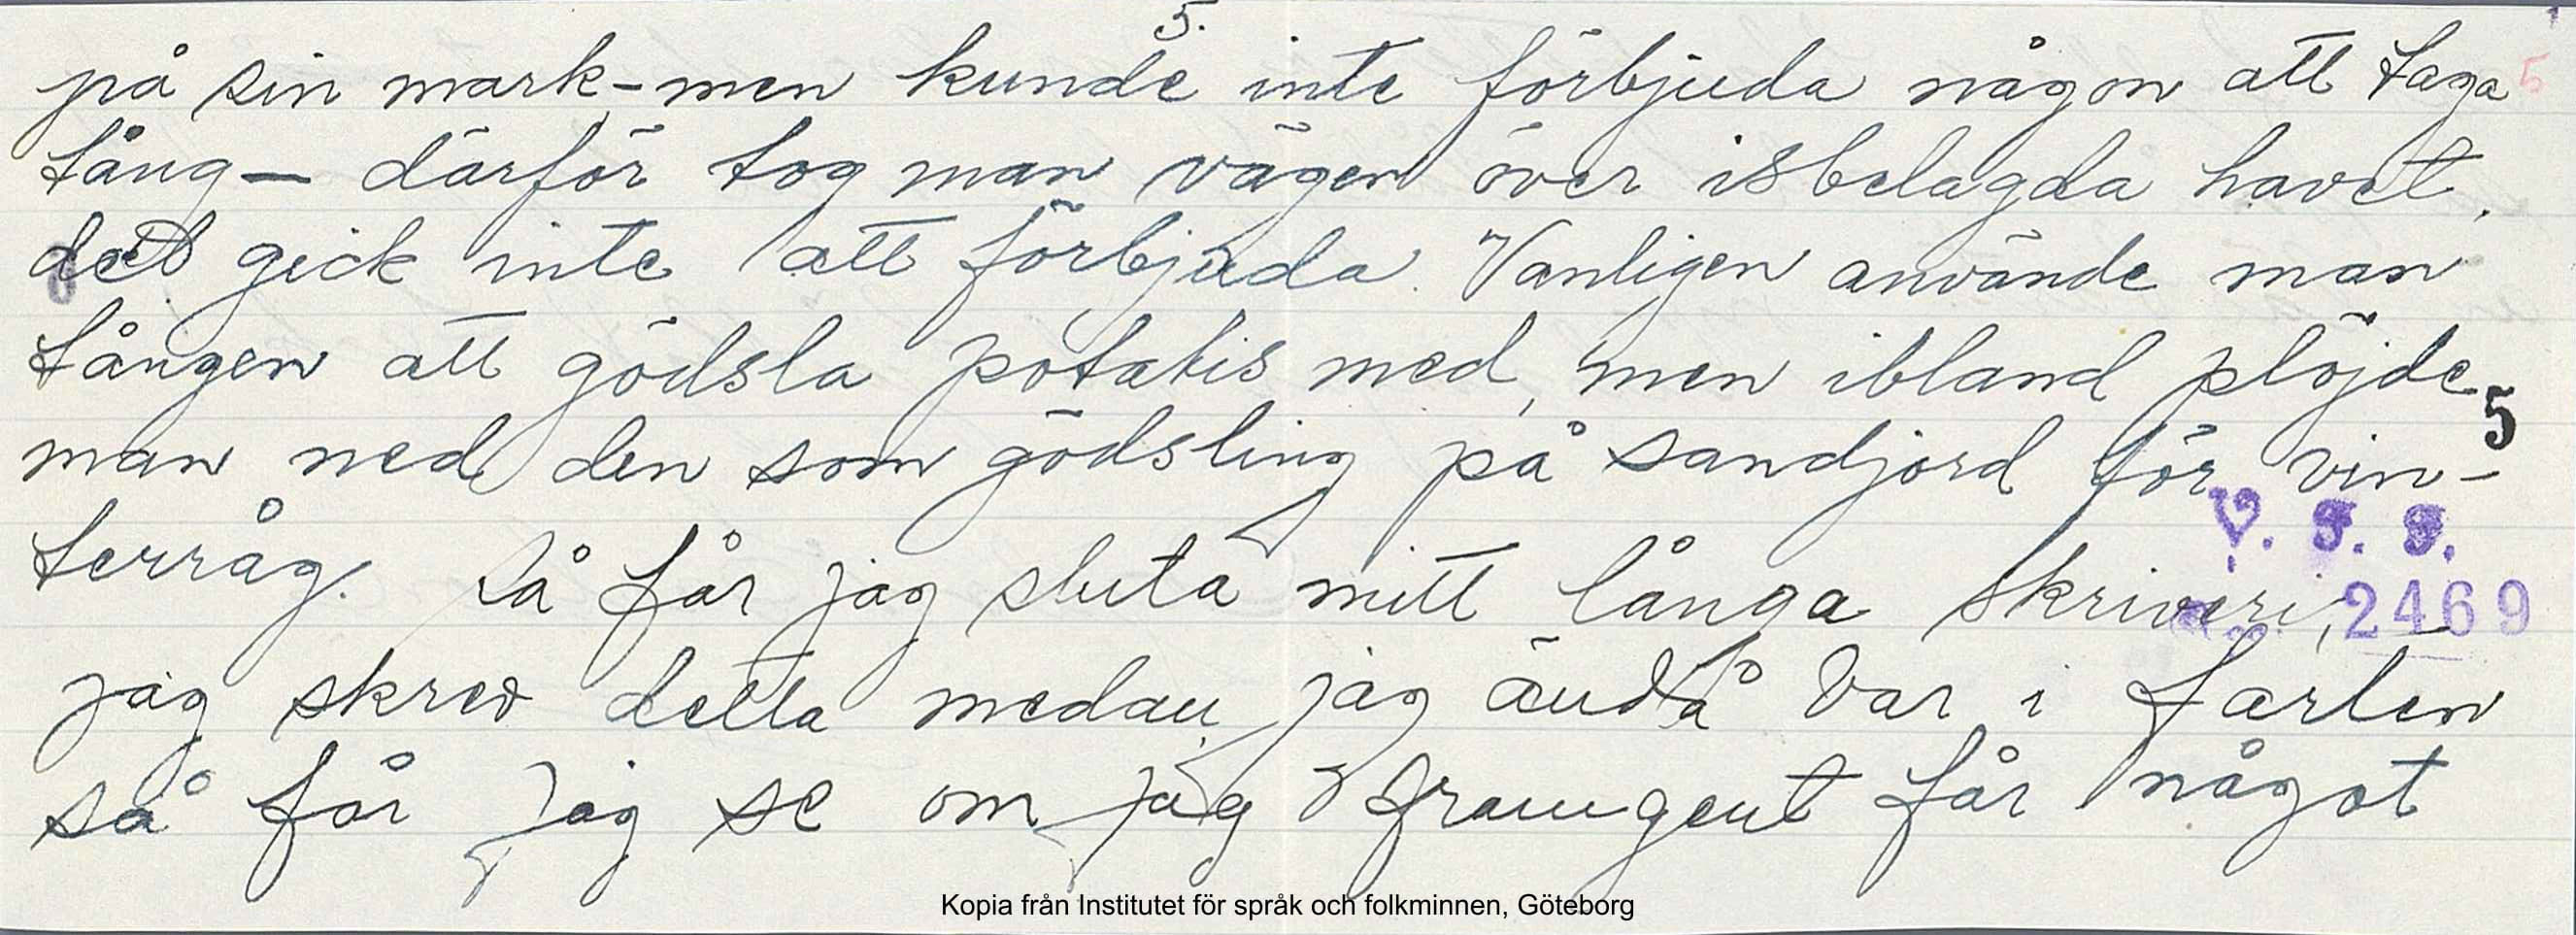 5.
på sin mark-men kunde inte förbjuda någon att taga 5
tång- därför tog man vägen över isbelagda havet.
det gick inte att förbjuda. Vanligen använde man
tången att gödsla potatis med, men ibland plöjde
5
man ned den som gödsling på sandjord för vin-
V. F. F.
terråg. Så får jag sluta mitt långa skriveri,
2469
jag skrev detta medan jag ändå var i farten
så får jag se om jag framgent får något
Kopia från Institutet för språk och folkminnen, Göteborg